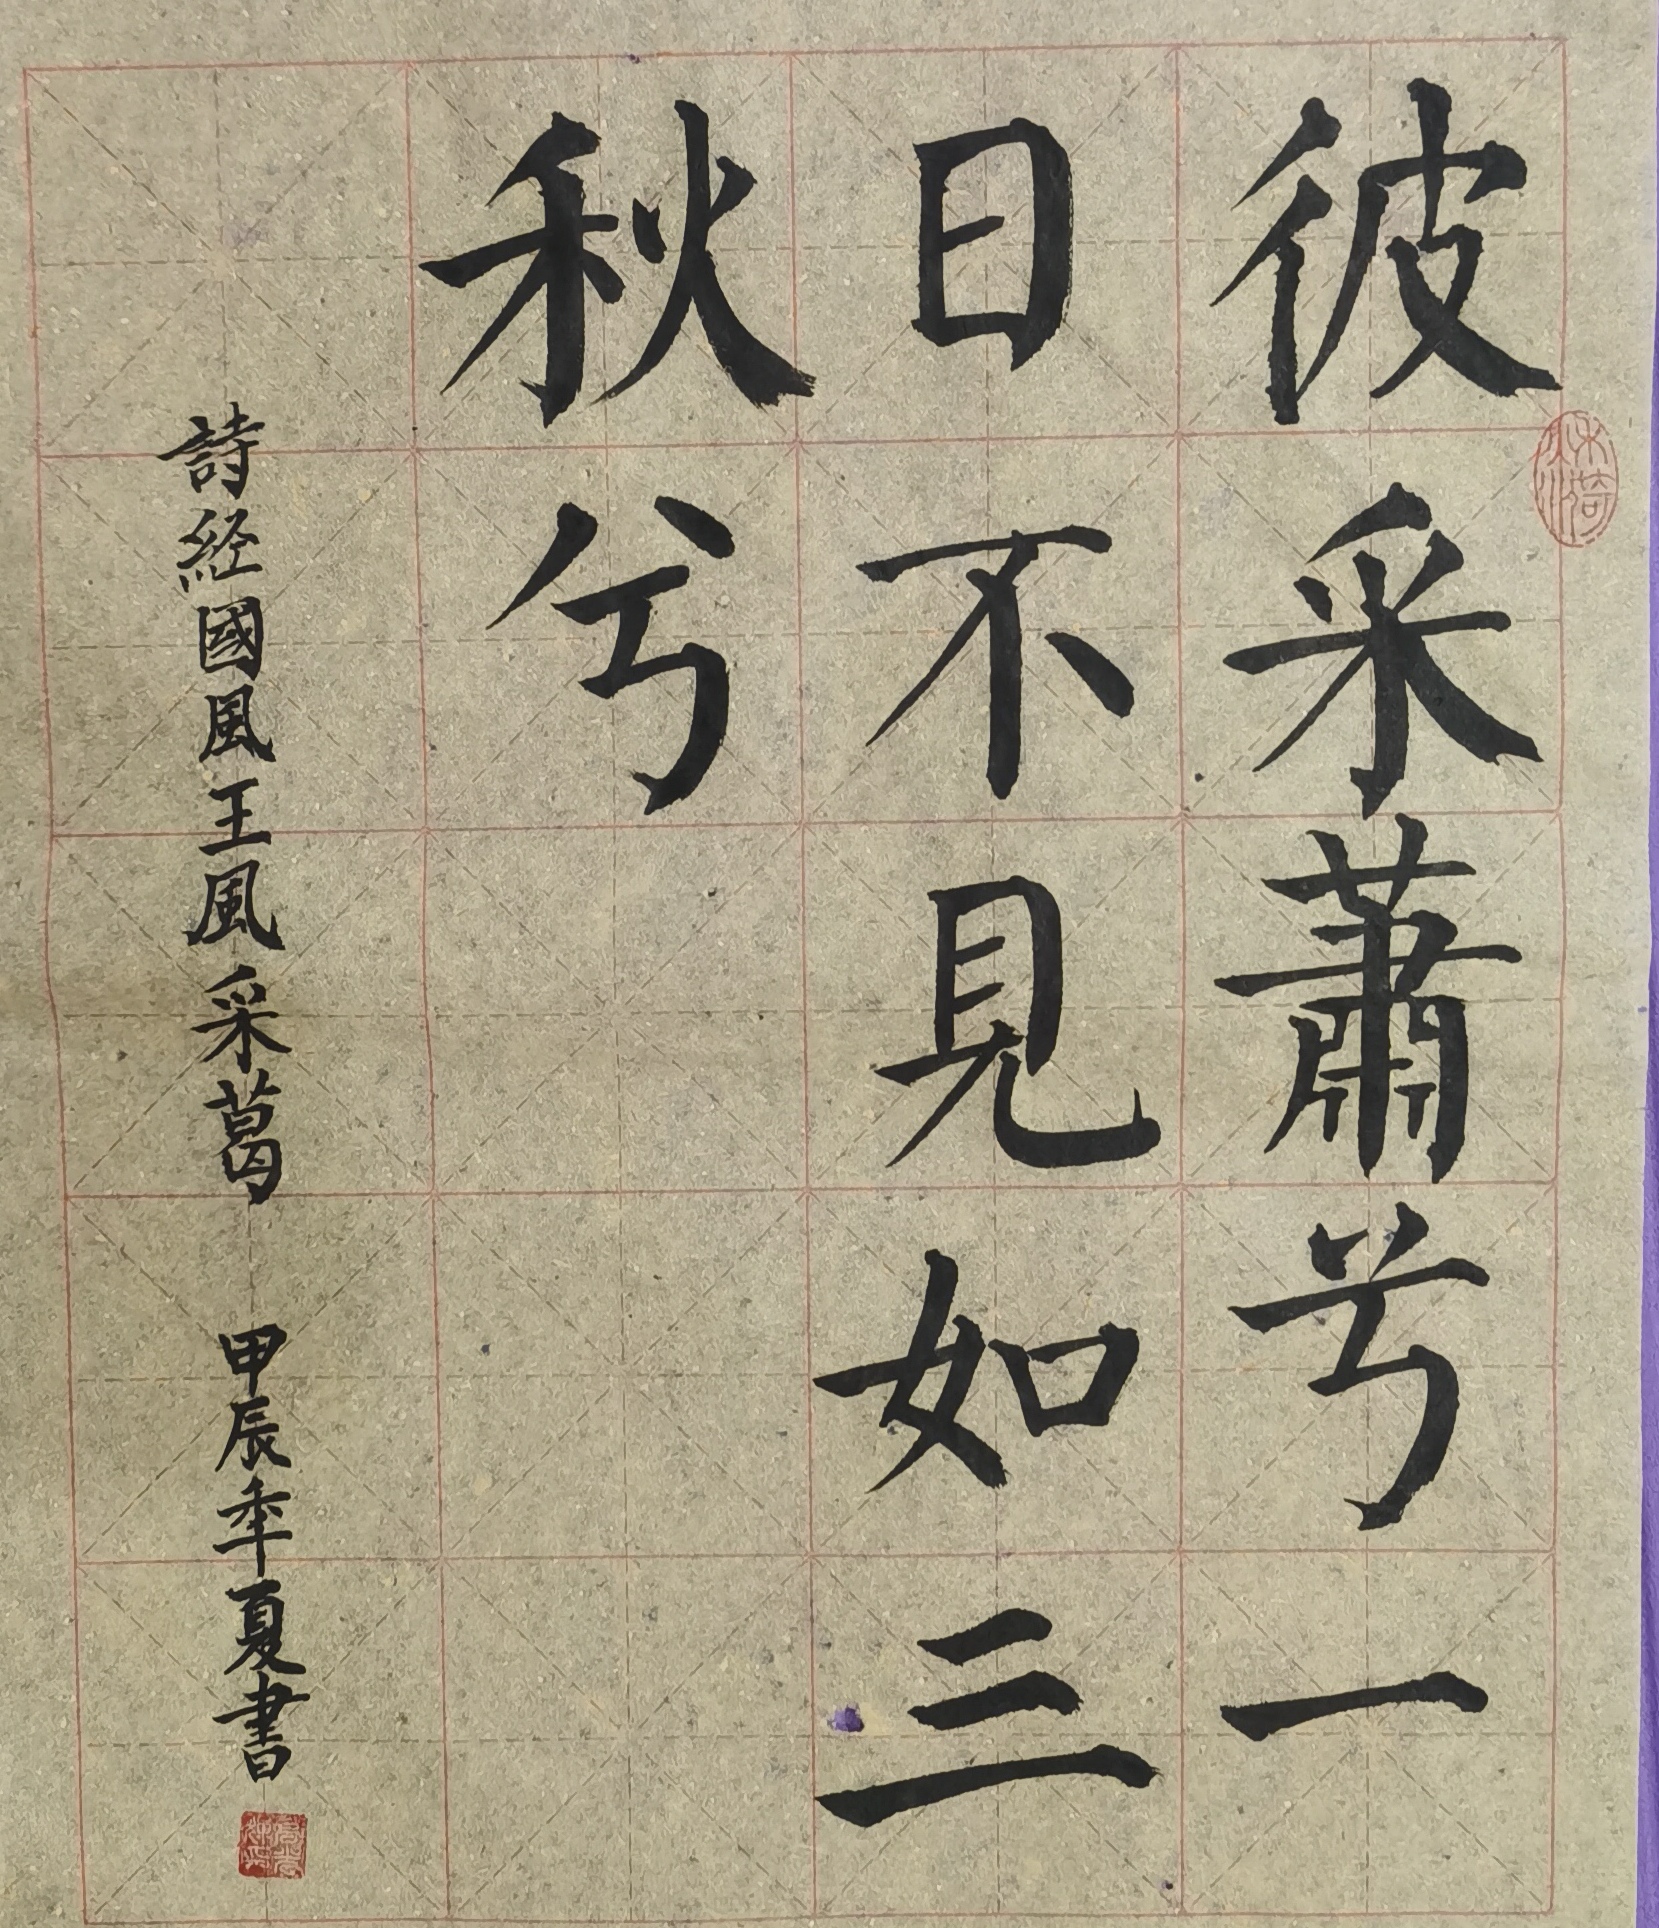 彼采蕭兮一
日不見如三
秋兮
詩経國風王風采葛 甲辰年夏書